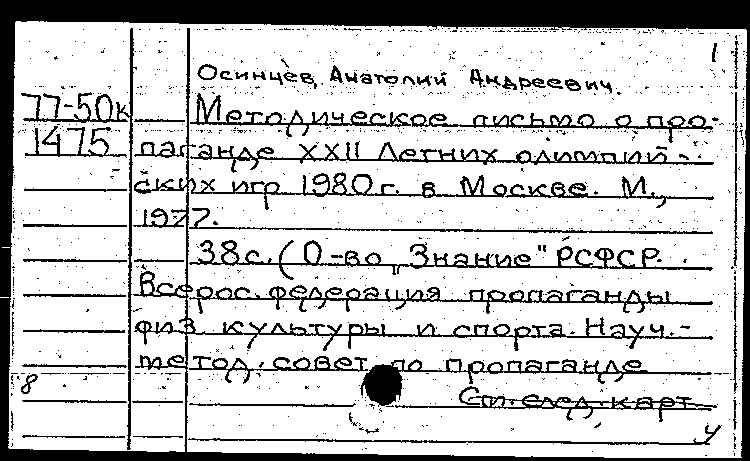 1
Осинцев, Анатолий Андреевич.
77-50к Методическое письмо о про-
1475 паганде XXII Летних олимпий-
ских игр 1980 г. в Москве. М.,
1977.
38 с. (О-во „Знание" РСФСР.
Всерос. федерация пропаганды
физ. культуры и спорта. Науч.-
метод. совет по пропаганде
8
См. след. карт.